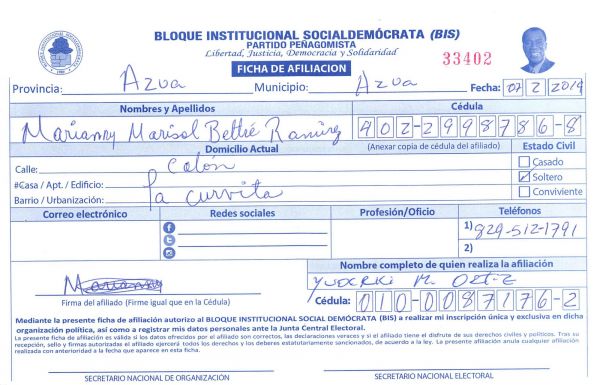 BLOQUE INSTITUCIONAL SOCIALDEMÓCRATA (BIS)
PARTIDO PEÑAGOMISTA
Libertad, Justicia, Democracia y Solidaridad
33402
FICHA DE AFILIACION
Provincia: Azua Municipio: Azua Fecha: 07/2/2019
Nombres y Apellidos Cédula
Marianny Marisol Beltré Ramirez 402-2998786-8
Domicilio Actual (Anexar copia de cédula del afiliado) Estado Civil
Calle: Colón Casado
#Casa / Apt. / Edificio: Soltero
Barrio / Urbanización: La curvita Conviviente
Correo electrónico Redes sociales Profesión/Oficio Teléfonos
1) 829-512-1791
2)
Nombre completo de quien realiza la afiliación
Marianny
Firma del afiliado (Firme igual que en la Cédula) Cédula: 010-0087176-2
Mediante la presente ficha de afiliación autorizo al BLOQUE INSTITUCIONAL SOCIAL DEMÓCRATA (BIS) a realizar mi inscripción única y exclusiva en dicha
organización política, así como a registrar mis datos personales ante la Junta Central Electoral.
La presente ficha de afiliación es válida si los datos ofrecidos por el afiliado son correctos, las declaraciones veraces y si el afiliado tiene el disfrute de sus derechos civiles y políticos. Tras su
recepción, sello y firmas autorizadas el afiliado ejercerá todos los derechos y los deberes estatutariamente sancionados, de acuerdo a la ley. La presente afiliación anula cualquier afiliación
realizada con anterioridad a la fecha que aparece en esta ficha.
SECRETARIO NACIONAL DE ORGANIZACIÓN SECRETARIO NACIONAL ELECTORAL